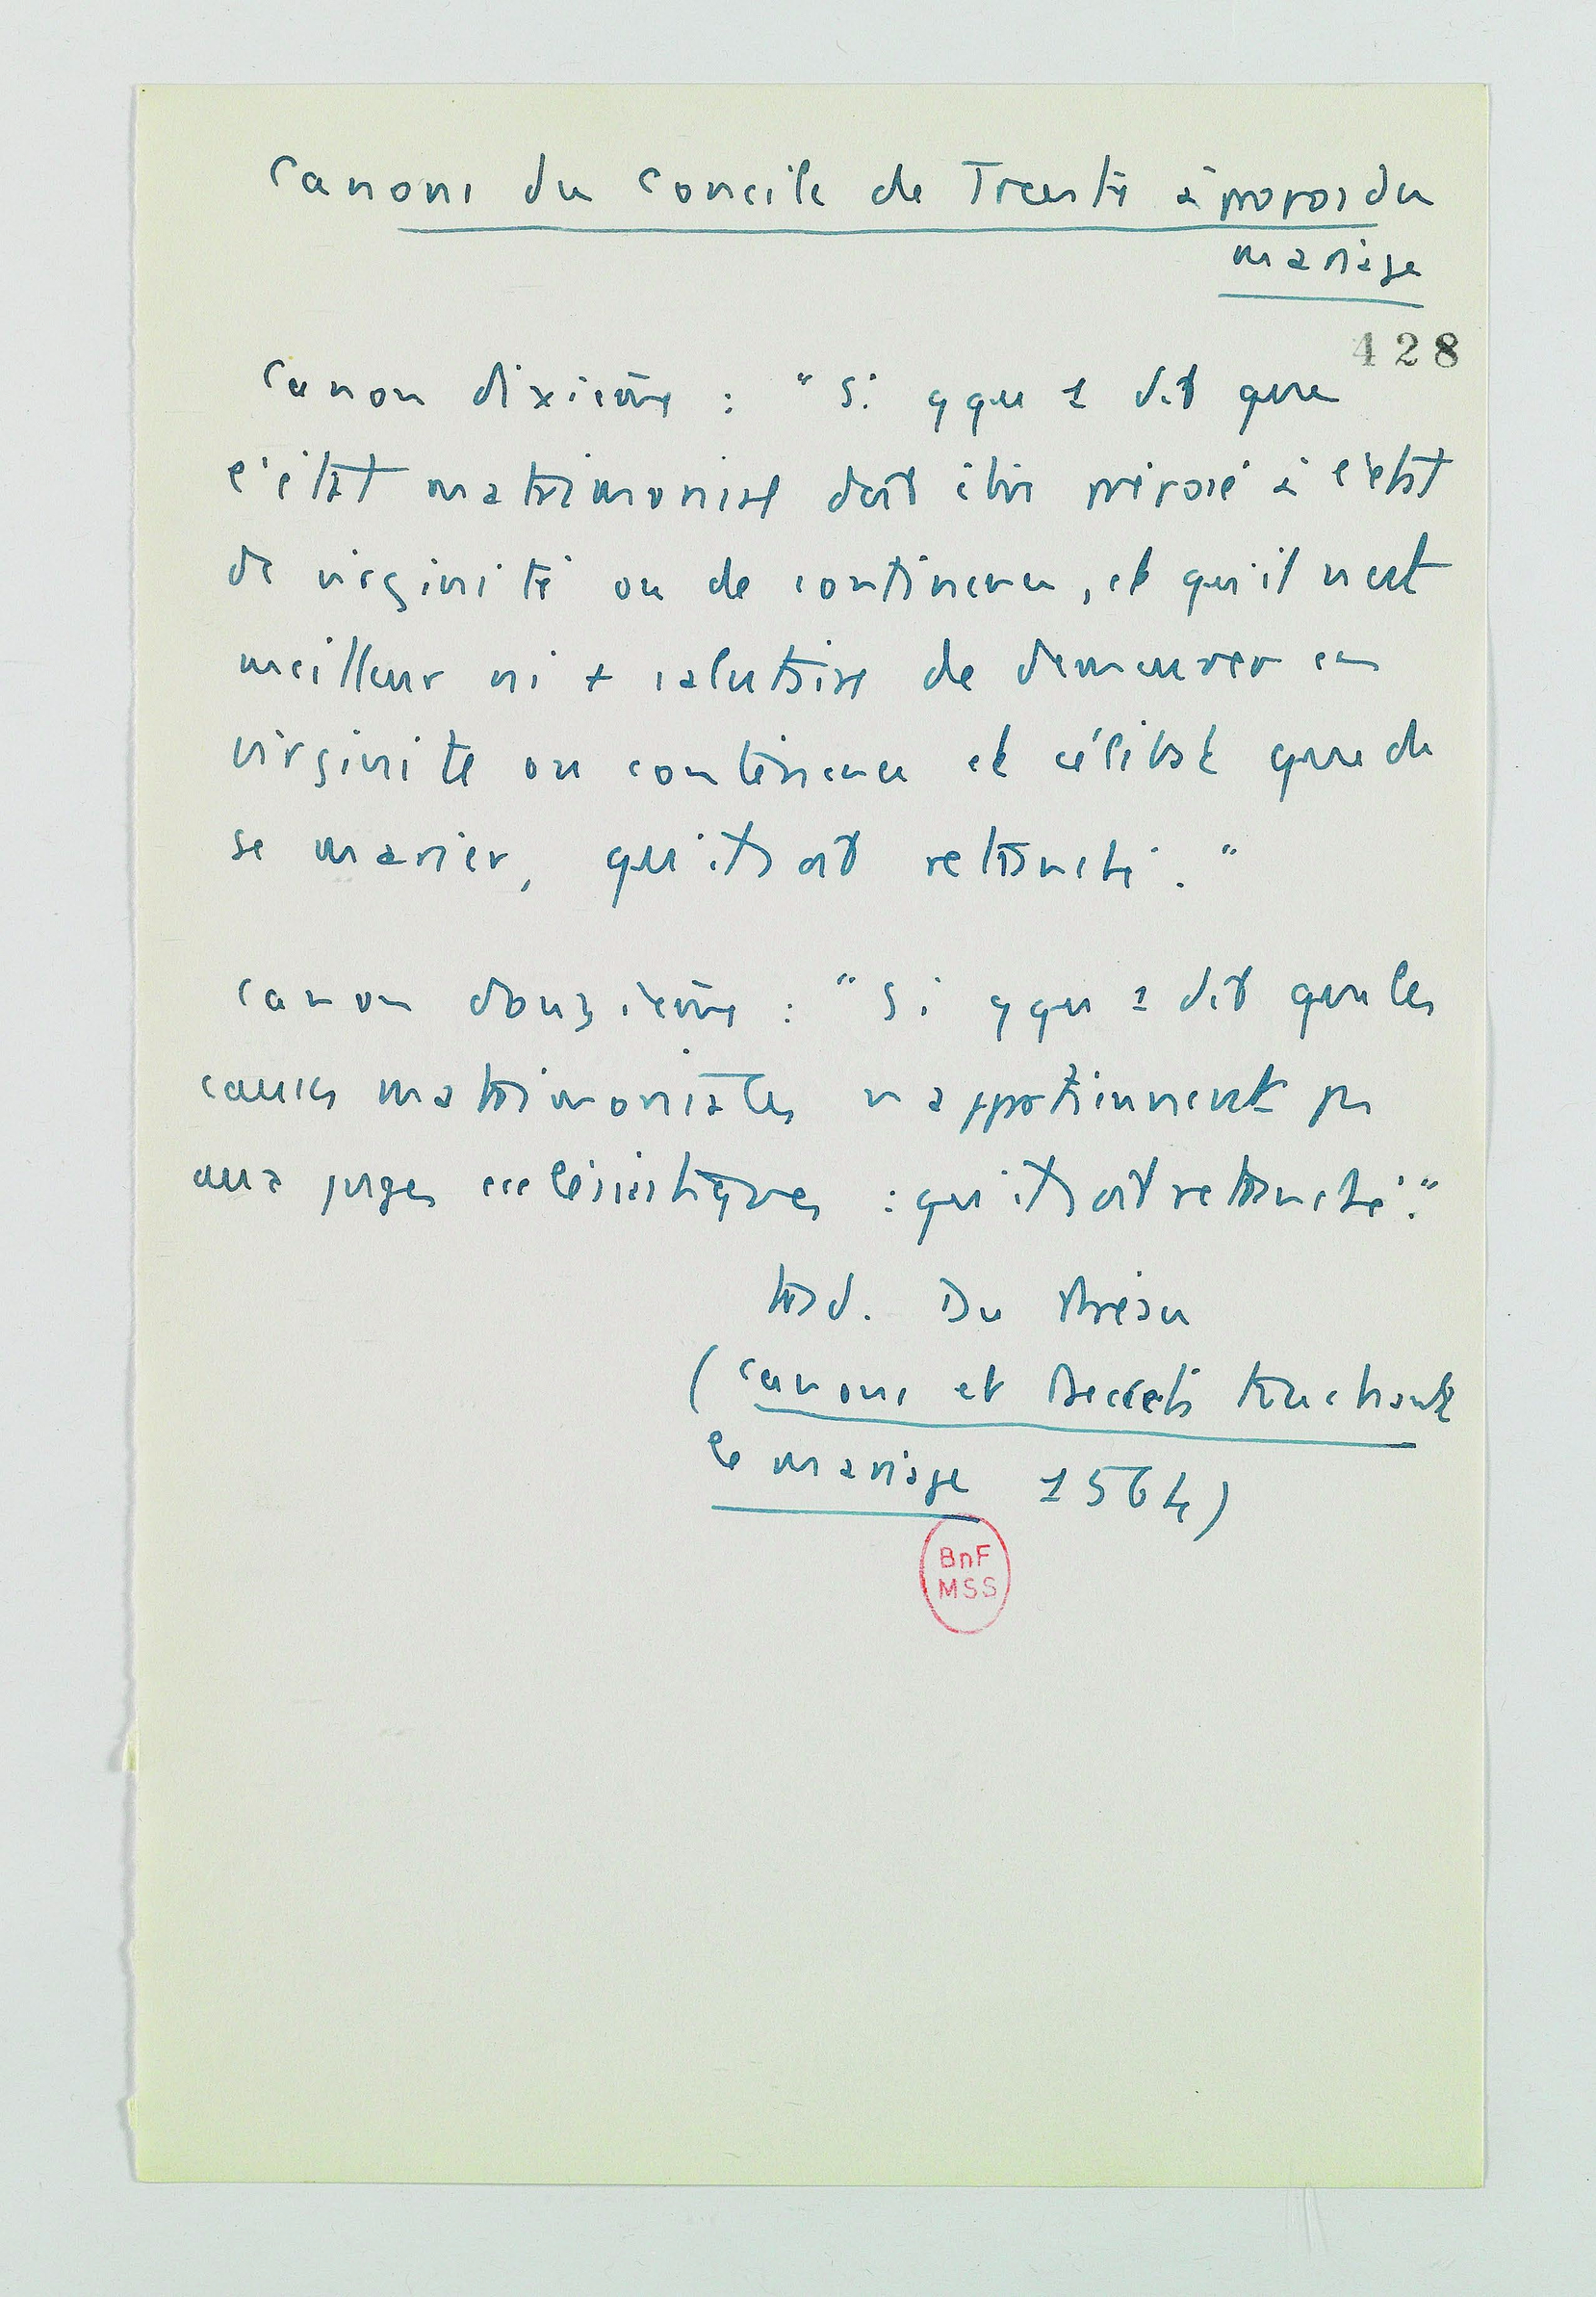 Canons du Concile de Trente à propos du
mariage
428
Canon dixième : "Si qqu 1 dit que
l'état matrimonial doit être préposé à l'état
de virginité ou de continence, et qu'il n'est
meilleur ni + salutaire de demeurer en
virginité ou continence et célibat que de
se marier, qu'il soit retranché."
Canon douzième : "Si qqu 1 dit que les
causes matrimoniales n'appartiennent pas
aux juges ecclésiastiques : qu'il soit retranché."
trad. Du
(Canons et Decrets touchant
le mariage 1564)
BnF
MSS